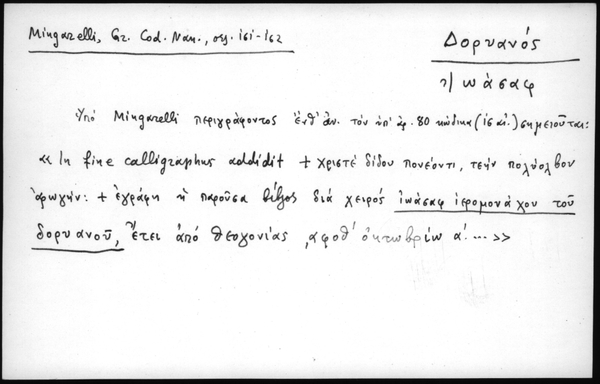 Mingarelli, Gr. Cod. Nan., σελ. 161-162
Δορυανός
η/ ιωάσαφ
Ὑπό Mingarelli περιγράφοντος ἔνθ' ἀν. τόν ὑπ' ἀρ. 80 κώδικα (ις αἰ.) σημειοῦται:
« In fine calligraphus addidit + χριστέ δίδου πονέοντι, τεήν πολύολβον
ἀρωγήν: + ἐγράφη ἡ παροῦσα βίβλος διά χειρός ἰωάσαφ ἱερομονάχου τοῦ
δορυανοῦ, ἔτει ἀπό θεογονίας ͵αφοθ' ὀκτωβρίω α'. ... »